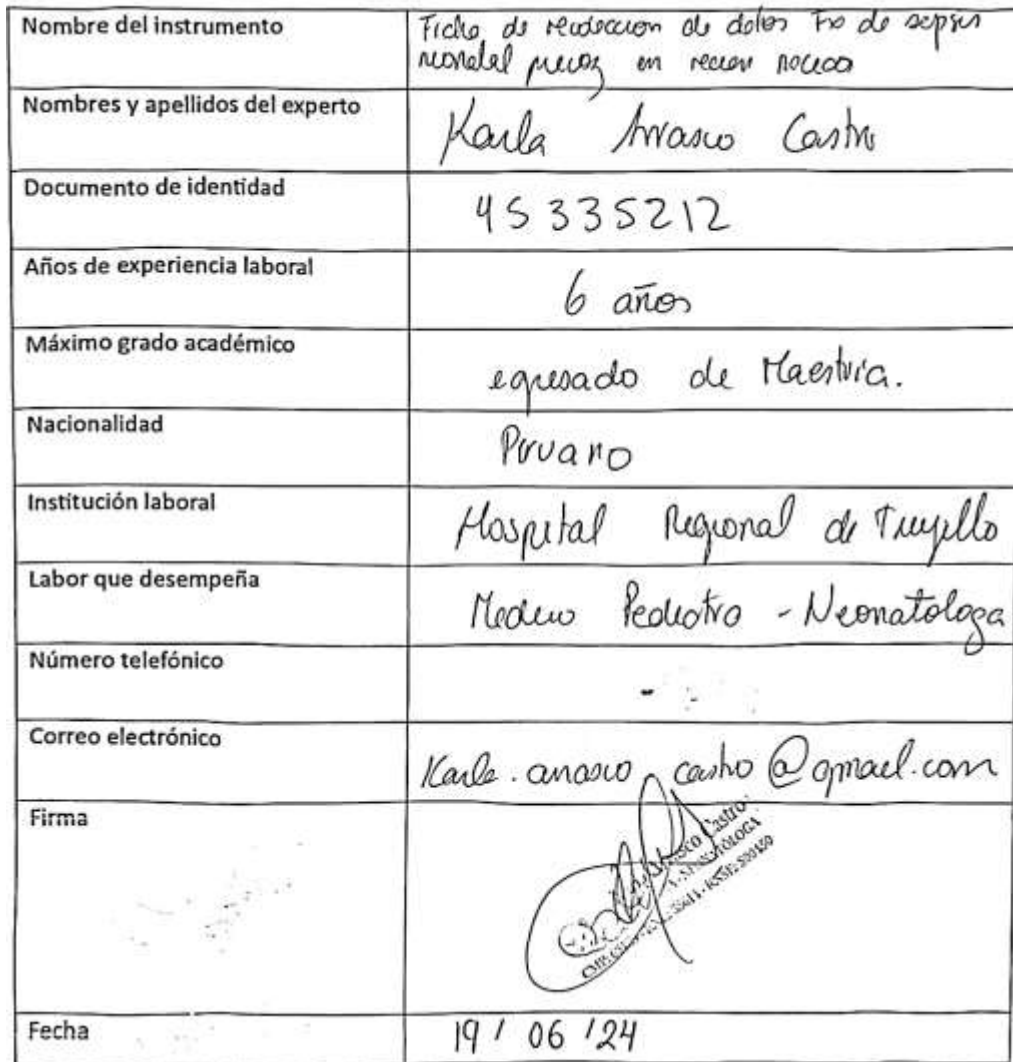 Nombre del instrumento
Ficha de recolección de datos FR de sepsis
neonatal precoz en recien nacido
Nombres y apellidos del experto
Karla Arrasco Castro
Documento de identidad
45335212
Años de experiencia laboral
6 años
Máximo grado académico
egresado de Maestria.
Nacionalidad
Peruano
Institución laboral
Hospital Regional de Trujillo
Labor que desempeña
Medico Pediatra - Neonatologa
Número telefónico
-
Correo electrónico
Karla.arrasco castro@gmail.com
Firma
Arrasco Castro
NEONATOLOGA
Fecha
19 / 06 / 24